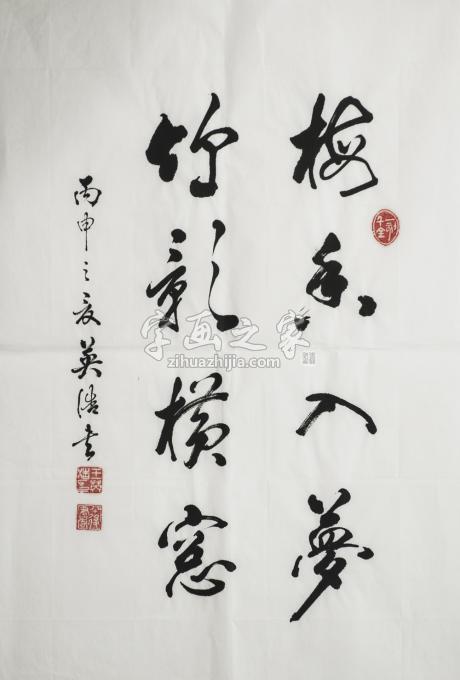 梅香入夢
竹影横窓
丙申之夏英浩书
字画之家
zihuazhijia.com